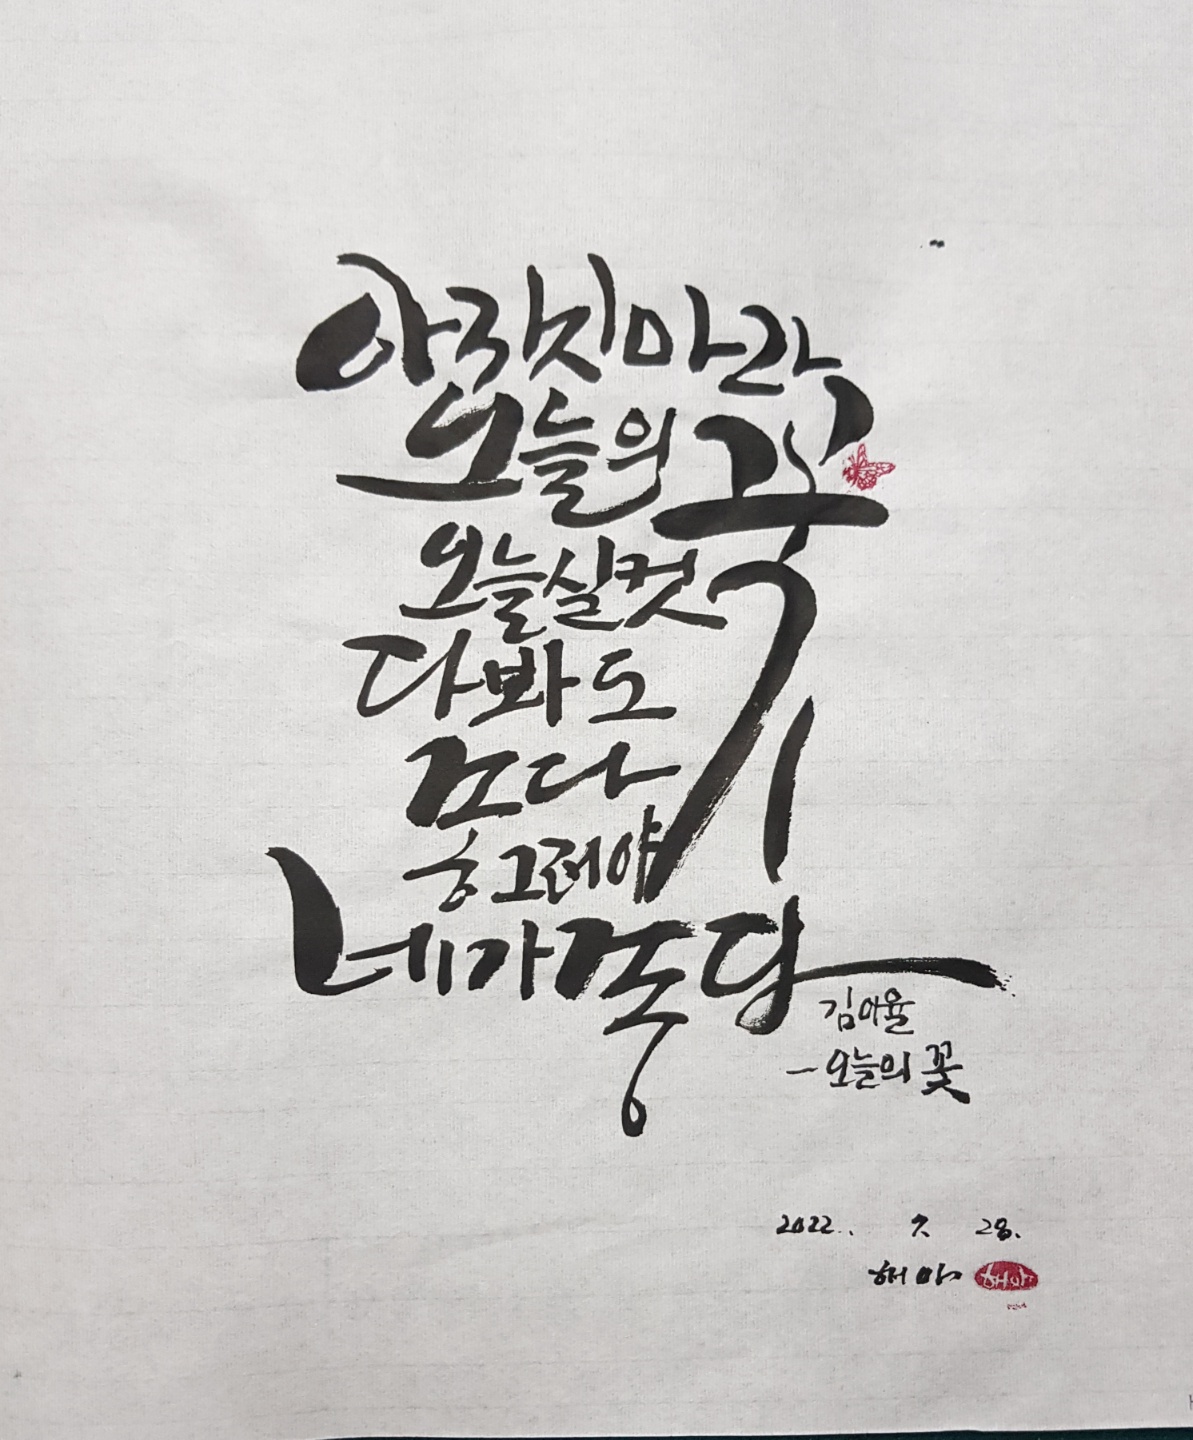 아끼지마라
오늘의 꽃
오늘실컷
다봐도
좋다
그래야
네가좋다
김아율
- 오늘의 꽃
2022. 7. 28.
해아 해아